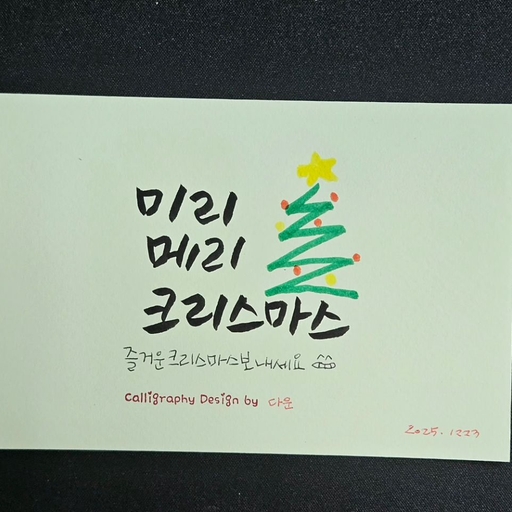 미리
메리
크리스마스
즐거운크리스마스보내세요
Calligraphy Design by 다운
2025. 1223